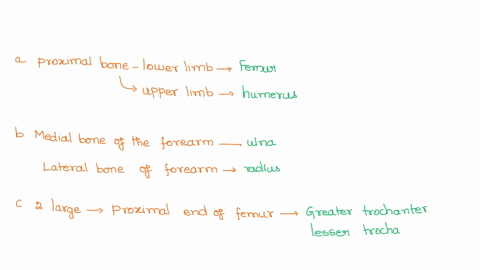 a proximal bone - lower limb → Femur
↳ upper limb → humerus
b Medial bone of the forearm — ulna
Lateral bone of forearm → radius
c 2 large → proximal end of femur → Greater trochanter
lesser trocha